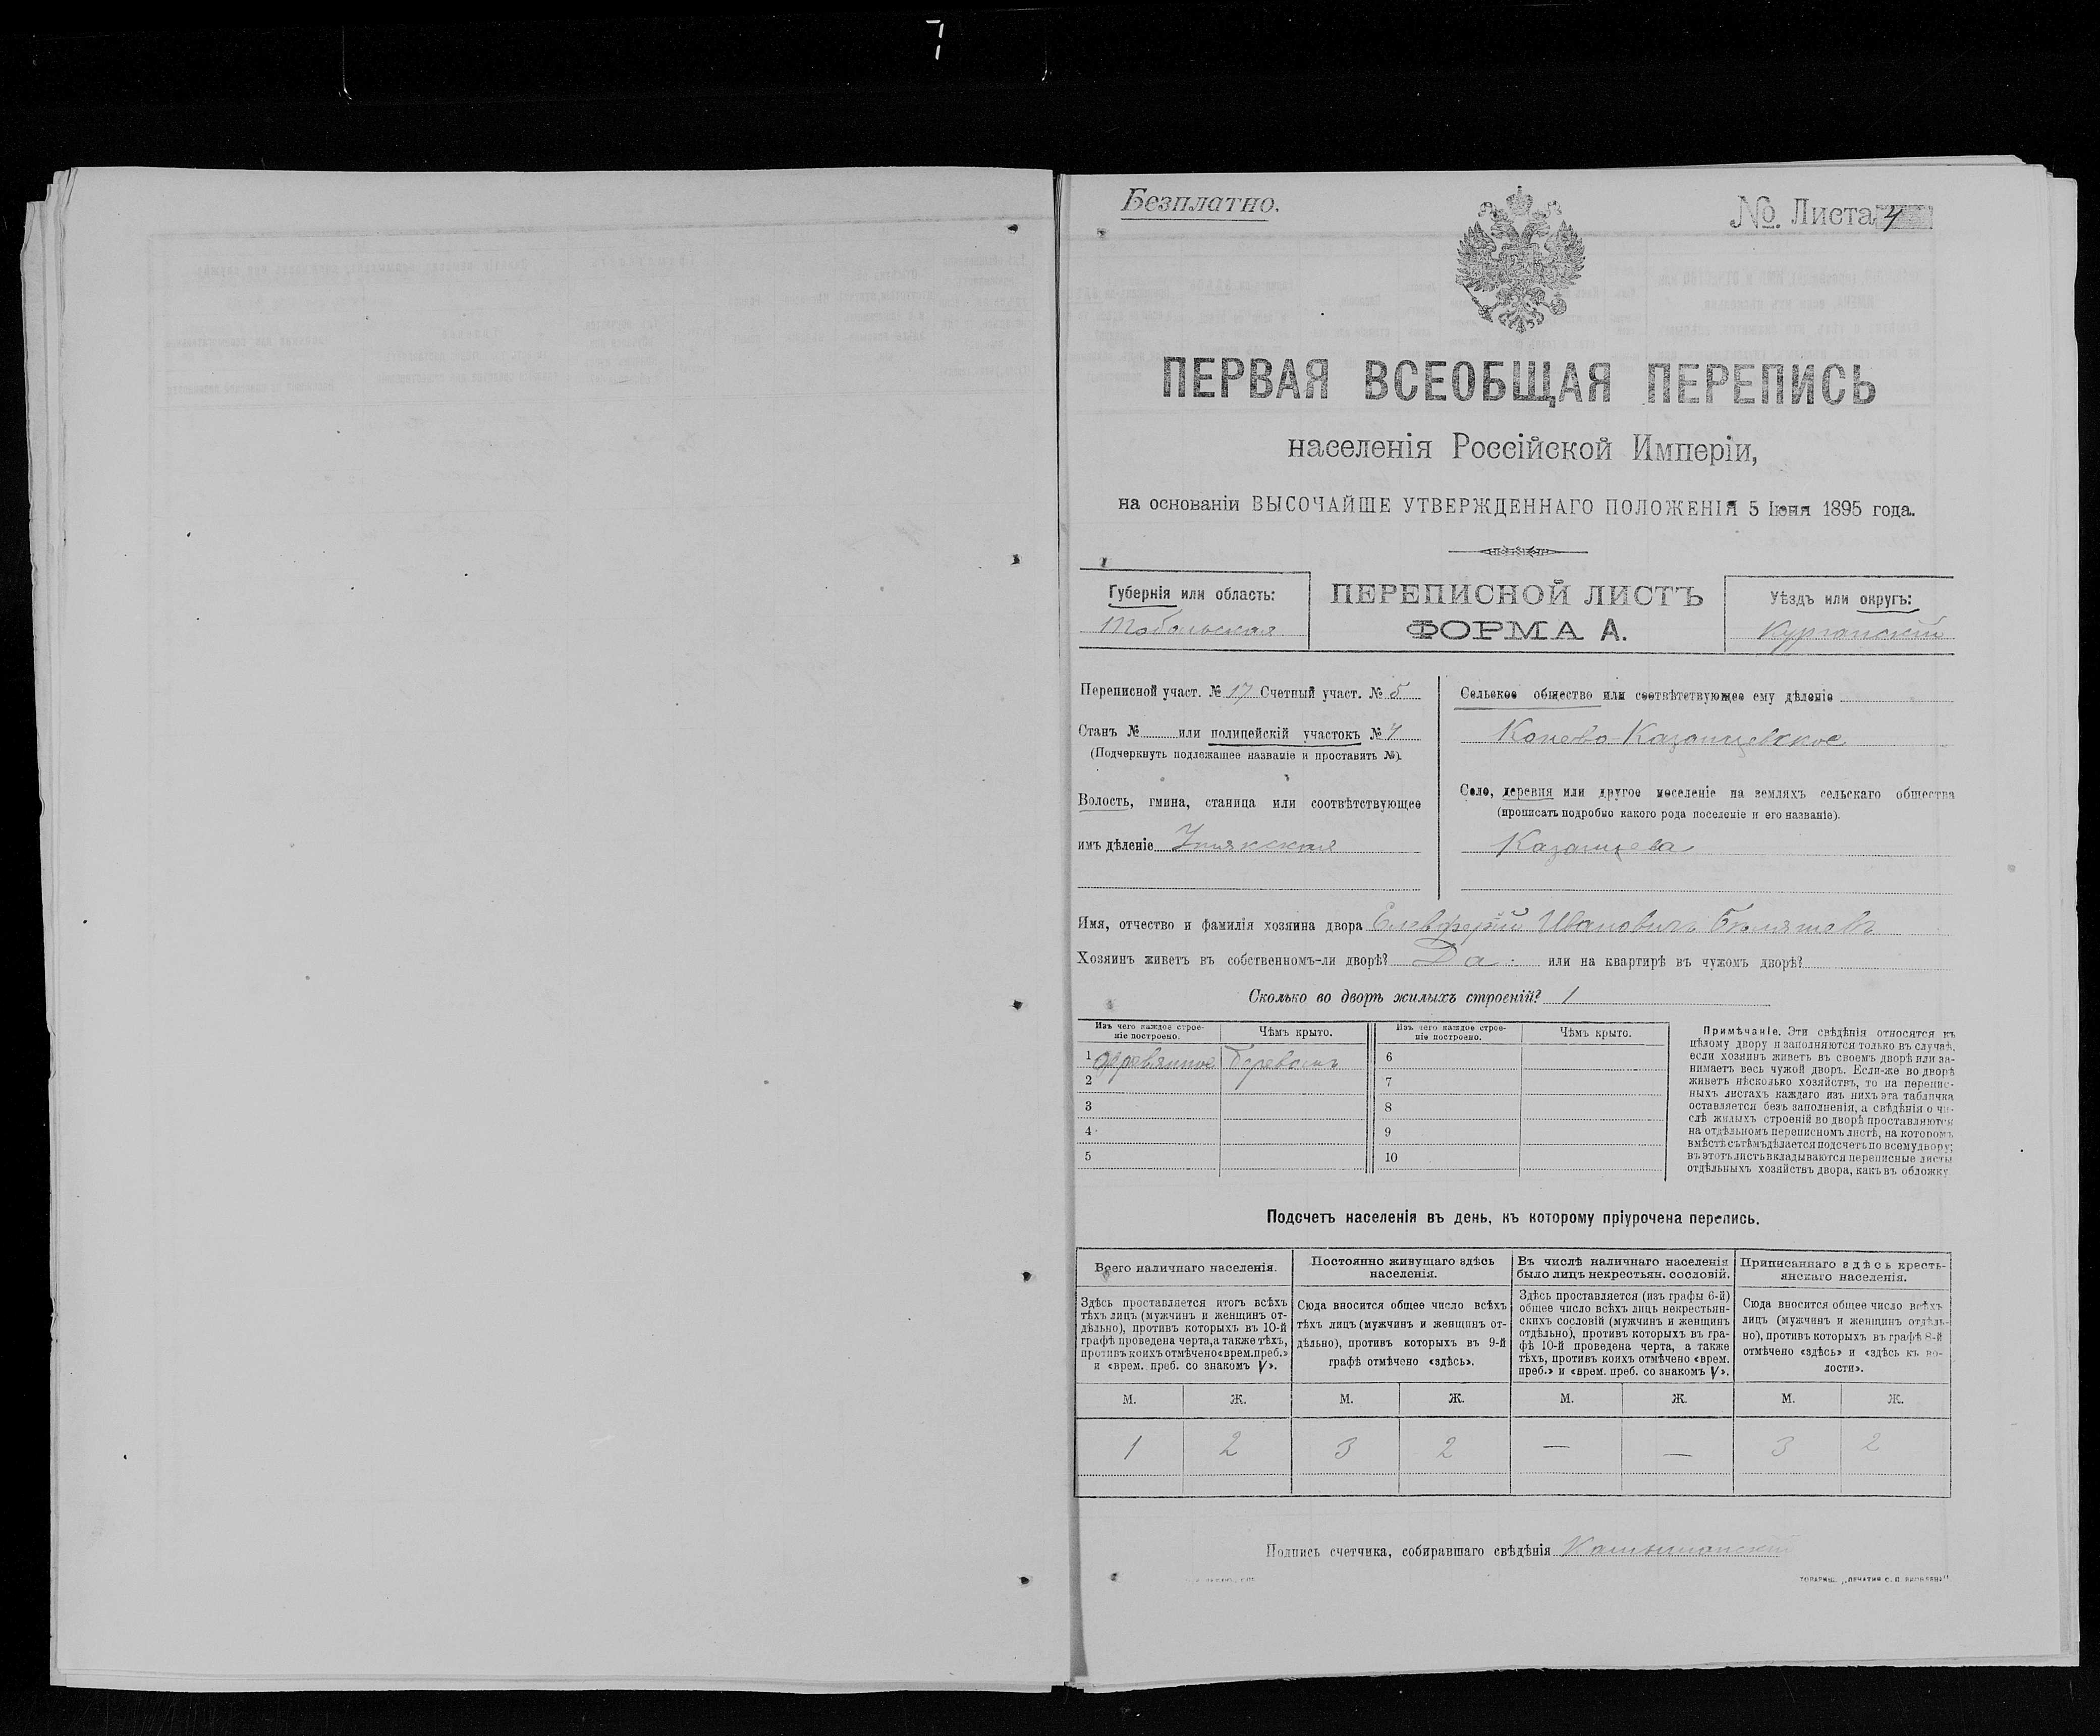 7
Безплатно.
№ Листа 4
ПЕРВАЯ ВСЕОБЩАЯ ПЕРЕПИСЬ
населенія Россійской Имперіи,
на основаніи ВЫСОЧАЙШЕ УТВЕРЖДЕННАГО ПОЛОЖЕНІЯ 5 Іюня 1895 года.
Губернія или область:
Тобольская
ПЕРЕПИСНОЙ ЛИСТЪ
ФОРМА А.
Уѣздъ или округъ:
Курганскій
Переписной участ. № 17 Счетный участ. № 5
Станъ № или полицейскій участокъ № 4
(Подчеркнуть подлежащее названіе и проставить №).
Волость, гмина, станица или соотвѣтствующее
имъ дѣленіе Утякская
Сельское общество или соотвѣтствующее ему дѣленіе
Конево-Казанцевское
Село, деревня или другое поселеніе на земляхъ сельскаго общества
(прописать подробно какого рода поселеніе и его названіе).
Казанцева
Имя, отчество и фамилія хозяина двора Елевферій Ивановичъ
Хозяинъ живетъ въ собственномъ-ли дворѣ? Да. или на квартирѣ въ чужомъ дворѣ?
Сколько во дворѣ жилыхъ строеній? 1
Изъ чего каждое строе-
ніе построено.
Чѣмъ крыто.
Изъ чего каждое строе-
ніе построено.
Чѣмъ крыто.
1 деревянное Деревомъ 6
2 7
3 8
4 9
5 10
Примѣчаніе. Эти свѣдѣнія относятся къ
цѣлому двору и заполняются только въ случаѣ,
если хозяинъ живетъ въ своемъ дворѣ или за-
нимаетъ весь чужой дворъ. Если-же во дворѣ
живетъ нѣсколько хозяйствъ, то на перепис-
ныхъ листахъ каждаго изъ нихъ эта табличка
оставляется безъ заполненія, а свѣдѣнія о чи-
слѣ жилыхъ строеній во дворѣ проставляются
на отдѣльномъ переписномъ листѣ, на которомъ
вмѣстѣ съ тѣмъ дѣлается подсчетъ по всему двору;
въ этотъ листъ вкладываются переписные листы
отдѣльныхъ хозяйствъ двора, какъ въ обложку
Подсчетъ населенія въ день, къ которому пріурочена перепись.
Всего наличнаго населенія.
Постоянно живущаго здѣсь
населенія.
Въ числѣ наличнаго населенія
было лицъ некрестьян. сословій.
Приписаннаго здѣсь кресть-
янскаго населенія.
Здѣсь проставляется итогъ всѣхъ
тѣхъ лицъ (мужчинъ и женщинъ от-
дѣльно), противъ которыхъ въ 10-й
графѣ проведена черта, а также тѣхъ,
противъ коихъ отмѣчено «врем. преб.»
и «врем. преб. со знакомъ V».
Сюда вносится общее число всѣхъ
тѣхъ лицъ (мужчинъ и женщинъ от-
дѣльно), противъ которыхъ въ 9-й
графѣ отмѣчено «здѣсь».
Здѣсь проставляется (изъ графы 6-й)
общее число всѣхъ лицъ некрестьян-
скихъ сословій (мужчинъ и женщинъ
отдѣльно), противъ которыхъ въ гра-
фѣ 10-й проведена черта, а также
тѣхъ, противъ коихъ отмѣчено «врем.
преб.» и «врем. преб. со знакомъ V».
Сюда вносится общее число всѣхъ
лицъ (мужчинъ и женщинъ отдѣль-
но), противъ которыхъ въ графѣ 8-й
отмѣчено «здѣсь» и «здѣсь къ во-
лости».
М. Ж. М. Ж. М. Ж. М. Ж.
1 2 3 2 — — 3 2
Подпись счетчика, собиравшаго свѣдѣнія
ТОВАРИЩ. „ПЕЧАТНЯ С. П. ЯКОВЛЕВА"